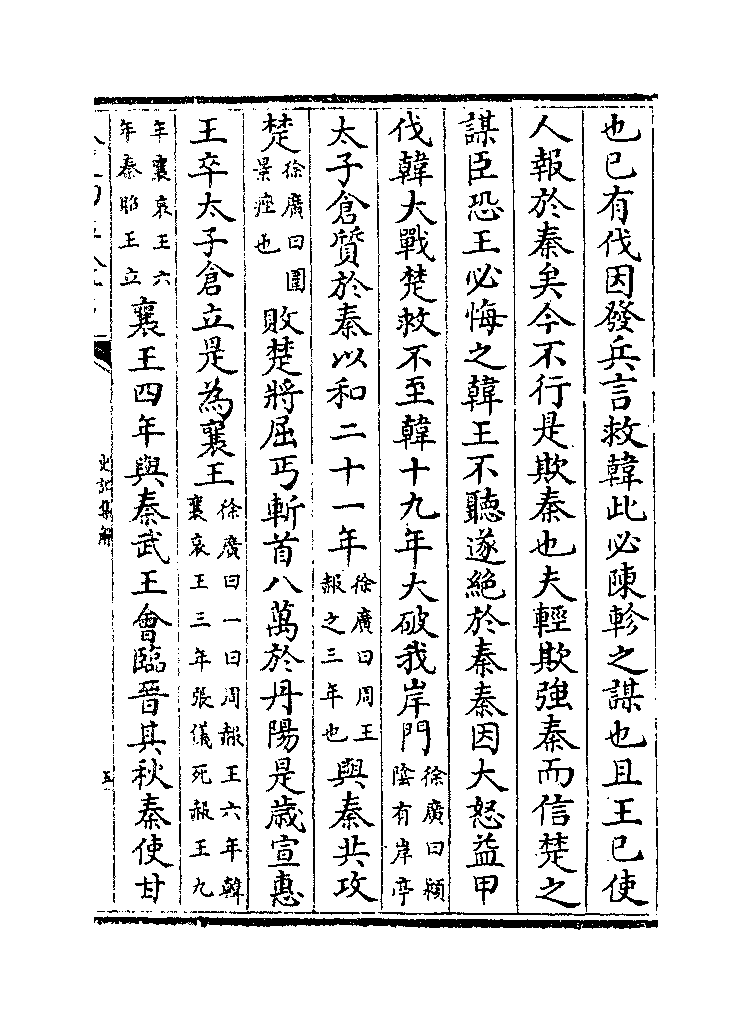 也已有伐因發兵言救韓此必陳軫之謀也且王已使
人報於秦矣今不行是欺秦也夫輕欺強秦而信楚之
謀臣恐王必悔之韓王不聽遂絶於秦秦因大怒益甲
伐韓大戰楚救不至韓十九年大破我岸門徐廣曰潁陰有岸亭
太子倉質於秦以和二十一年徐廣曰周王赧之三年也與秦共攻
楚徐廣曰圍景痤也敗楚將屈丐斬首八萬於丹陽是歲宣惠
王卒太子倉立是為襄王徐廣曰一曰周赧王六年韓襄哀王三年張儀死赧王九
年襄哀王六年秦昭王立襄王四年與秦武王會臨晉其秋秦使甘
史記集解
五